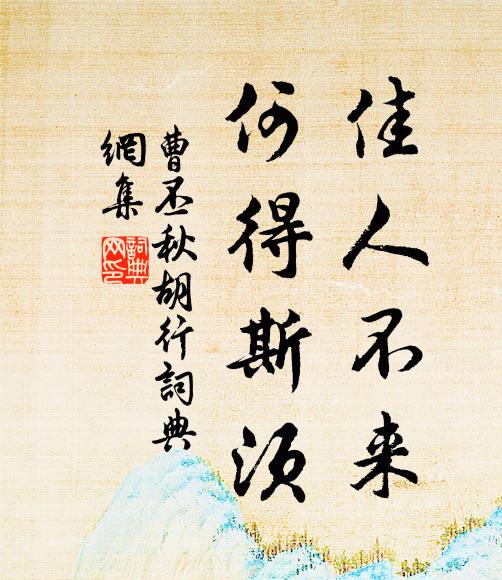 佳人不来
何得斯须
曹丕秋胡行词典
網集
詞典
网印